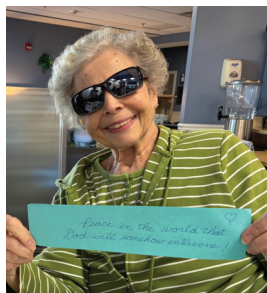 Peace in the world that
God will somehow intervene